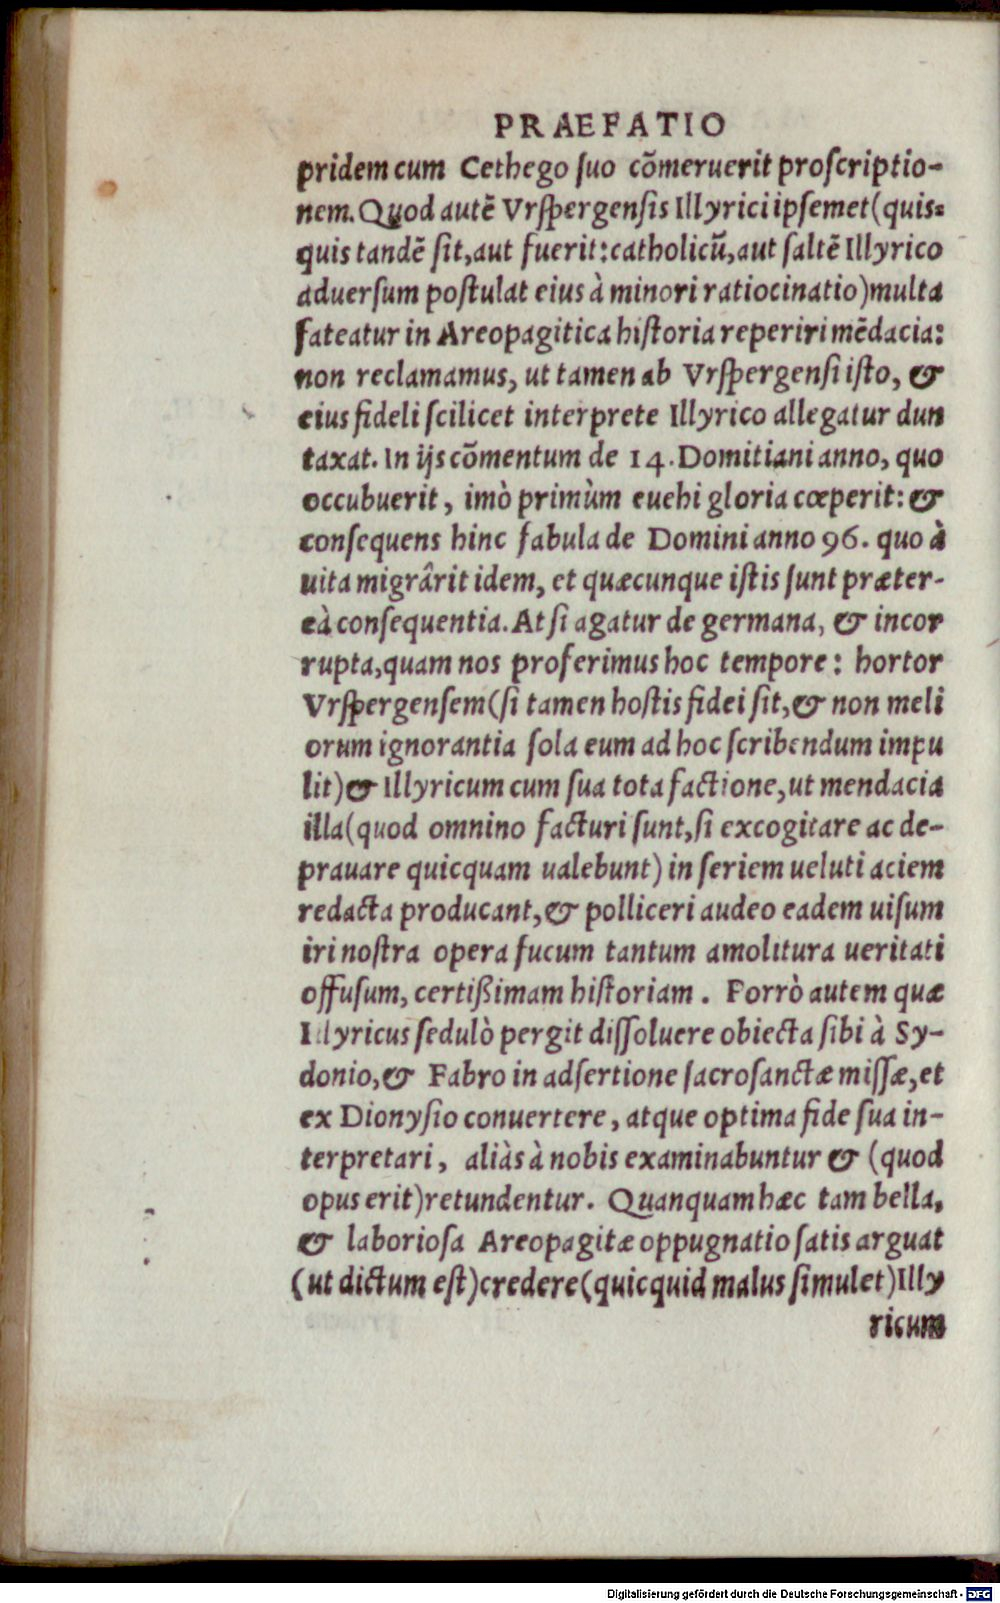 PRAEFATIO
pridem cum Cethego suo cõmeruerit proscriptio-
nem. Quod autẽ Vrspergensis Illyrici ipsemet (quis-
quis tandẽ sit, aut fuerit: catholicũ, aut saltẽ Illyrico
aduersum postulat eius à minori ratiocinatio) multa
fateatur in Areopagitica historia reperiri mẽdacia:
non reclamamus, ut tamen ab Vrspergensi isto, &
eius fideli scilicet interprete Illyrico allegatur dun
taxat. In ijs cõmentum de 14. Domitiani anno, quo
occubuerit, imò primùm euehi gloria cœperit: &
consequens hinc fabula de Domini anno 96. quo à
uita migrârit idem, et quæcunque istis sunt præter-
eà consequentia. At si agatur de germana, & incor
rupta, quam nos proferimus hoc tempore: hortor
Vrspergensem (si tamen hostis fidei sit, & non meli
orum ignorantia sola eum ad hoc scribendum impu
lit) & Illyricum cum sua tota factione, ut mendacia
illa (quod omnino facturi sunt, si excogitare ac de-
prauare quicquam ualebunt) in seriem ueluti aciem
redacta producant, & polliceri audeo eadem uisum
iri nostra opera fucum tantum amolitura ueritati
offusum, certißimam historiam. Porrò autem quæ
Illyricus sedulò pergit dissoluere obiecta sibi à Sy-
donio, & Fabro in adsertione sacrosanctæ missæ, et
ex Dionysio conuertere, atque optima fide sua in-
terpretari, aliàs à nobis examinabuntur & (quod
opus erit) retundentur. Quanquam hæc tam bella,
& laboriosa Areopagitæ oppugnatio satis arguat
(ut dictum est) credere (quicquid malus simulet) Illy
ricum
Digitalisierung gefördert durch die Deutsche Forschungsgemeinschaft - DFG